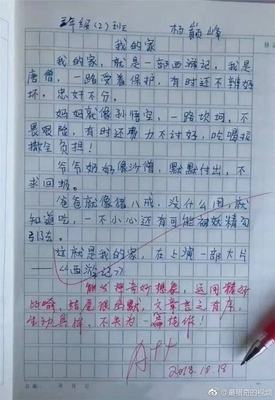 三年级(2)班 杨巅峰
我的家
我的家,就是一部西游记,我是
唐僧,一路受着保护,有时还不辨好
坏,忠奸不分。
妈妈就像孙悟空,一路坎坷,不
畏艰险,有时还费力不讨好,吃喝拉
撒全负担!
爷爷奶奶像沙僧,默默付出,不
求回报。
爸爸就像猪八戒,没什么用,就
知道吃,一不小心还有可能被妖精勾
引走。
这就是我的家,在上演一部大片
——《西游记》
能发挥奇妙想象,运用精妙
比喻,结尾很幽默,文章言之有序,
生动具体,不失为一篇佳作!
2018.10.18
@最暖奇的视频